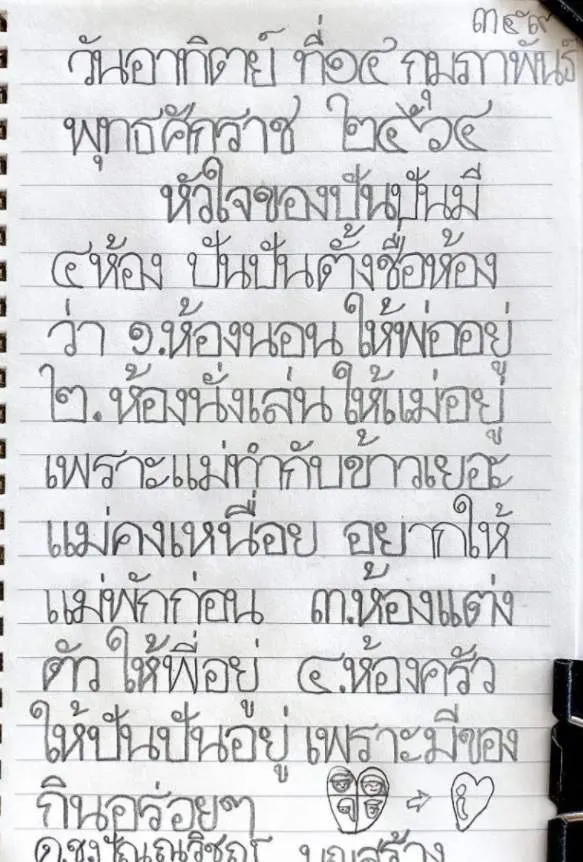 ๓๕๙
วันอาทิตย์ ที่๑๔ กุมภาพันธ์
พุทธศักราช ๒๕๖๔
หัวใจของปันปันมี
๔ห้อง ปันปันตั้งชื่อห้อง
ว่า ๑.ห้องนอน ให้พ่ออยู่
๒.ห้องนั่งเล่น ให้แม่อยู่
เพราะแม่ทำกับข้าวเยอะ
แม่คงเหนื่อย อยากให้
แม่พักก่อน ๓.ห้องแต่ง
ตัว ให้พี่อยู่ ๔.ห้องครัว
ให้ปันปันอยู่ เพราะมีของ
กินอร่อยๆ
ด.ช.ปัณณวิชญ์ บุญสร้าง